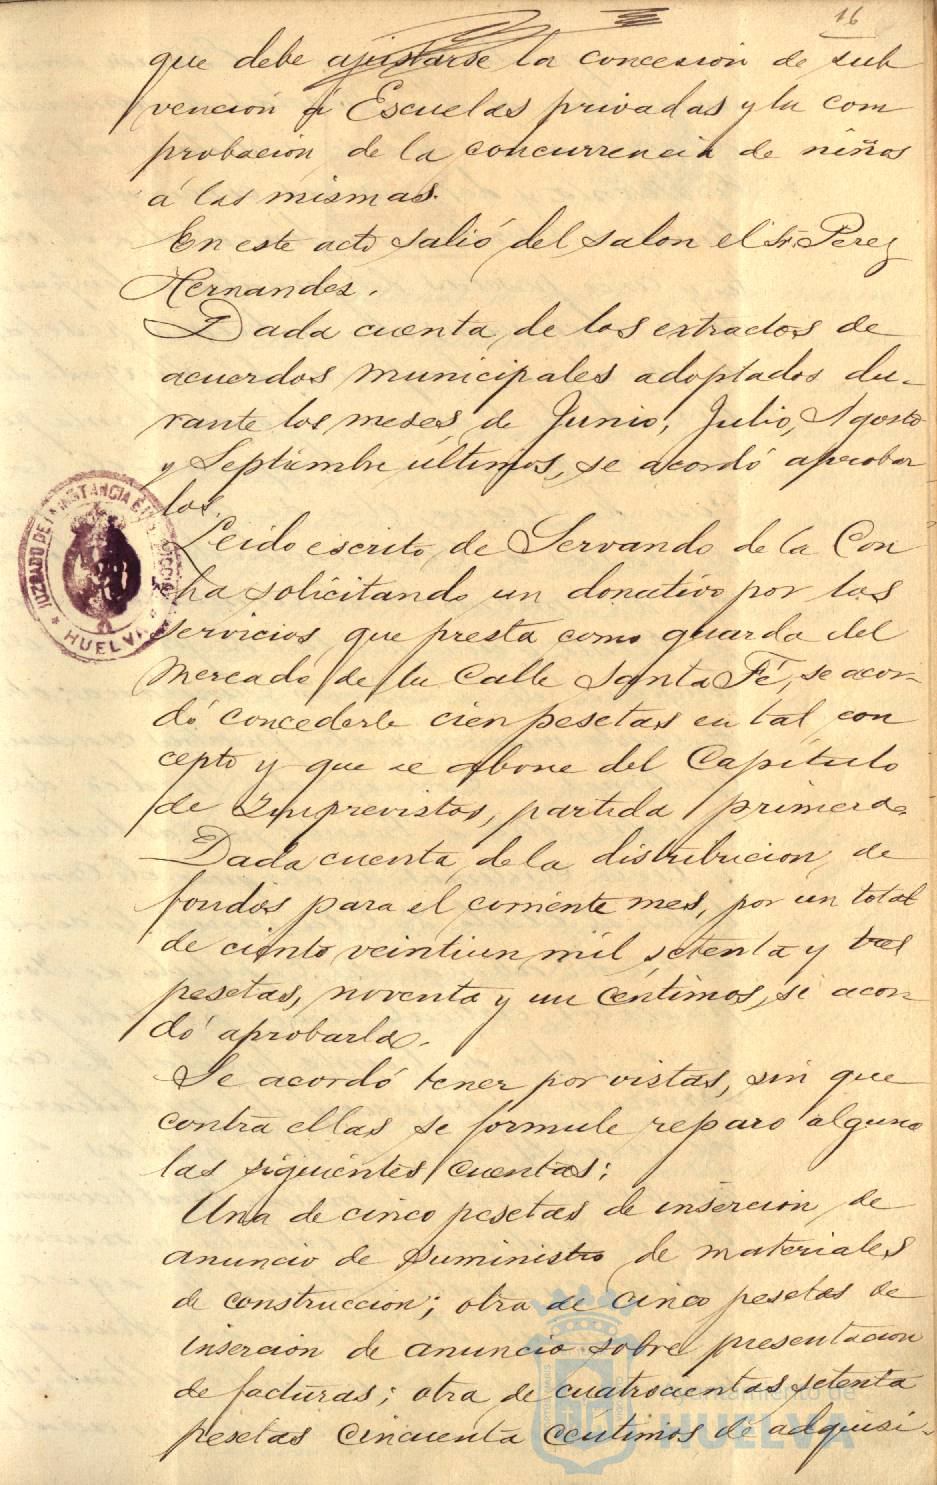 16
que debe ajustarse la concesion de sub
vencion á Escuelas privadas y la com
probacion de la concurrencia de niños
á las mismas.
En este acto salió del salon el Sr. Perez
Hernandez.
Dada cuenta de los extractos de
acuerdos municipales adoptados du-
rante los meses de Junio, Julio, Agosto
y Septiembre últimos, se acordó aprobar
los.
Leido escrito de Servando de la Con
cha solicitando un donativo por los
servicios que presta como guarda del
Mercado de la Calle Santa Fé, se acor-
dó concederle cien pesetas en tal con
cepto y que se abone del Capítulo
de Imprevistos, partida primera.
Dada cuenta de la distribucion de
fondos para el corriente mes, por un total
de ciento veintiun mil setenta y tres
pesetas, noventa y un céntimos, se acor-
dó aprobarla.
Se acordó tener por vistas, sin que
contra ellas se formule reparo alguno
las siguientes cuentas:
Una de cinco pesetas de insercion de
anuncio de suministro de materiales
de construccion; otra de cinco pesetas de
insercion de anuncio sobre presentacion
de facturas; otra de cuatrocientas setenta
pesetas cincuenta centimos de adquisi-
JUZGADO DE 1ª INSTANCIA É INSTRUCCION
HUELVA
Ayuntamiento de
HUELVA